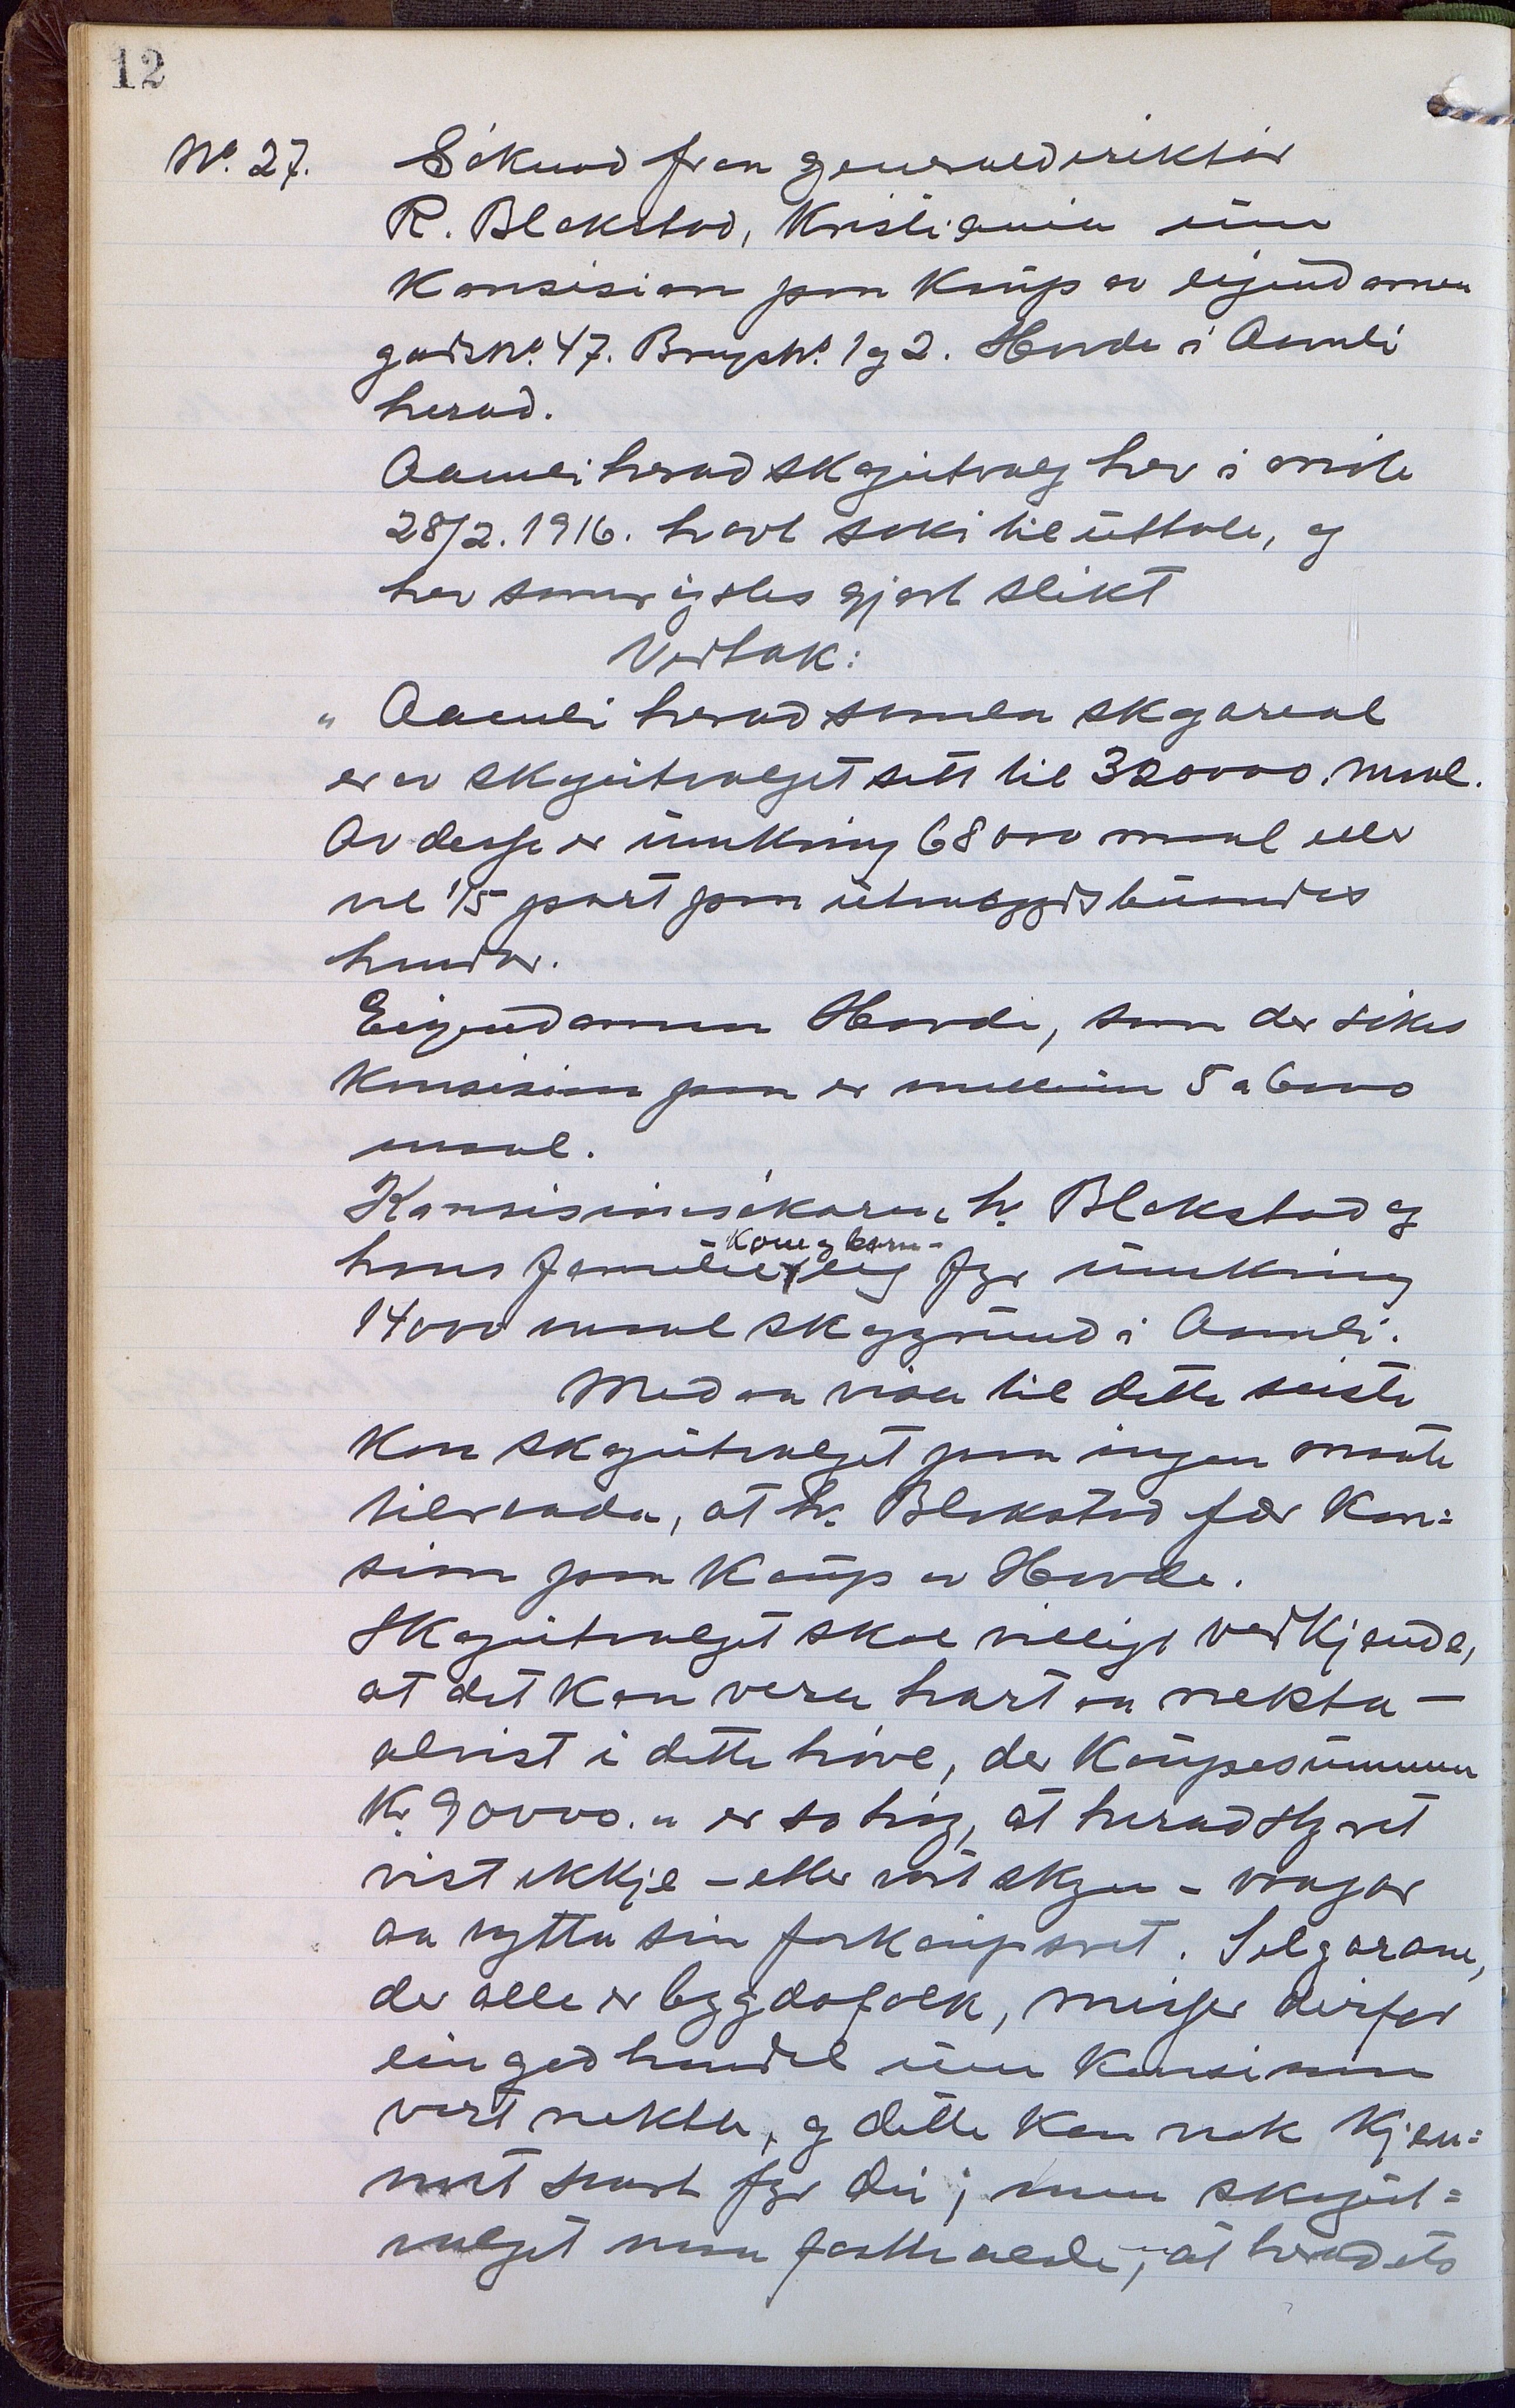 12
No. 27. Søknad fraa generaldirektør
R. Blakstad, Kristiania um
Konsesion paa Kaup av eigendomen
gardsno. 47. Bruksno. 1 og 2. Hovde i Aamli
herad.
Aamli herad skogutvalg hev i møte
28/2. 1916. havt saki til uttale, og
hev samrøystes gjort slikt
Vedtak:
"Aamli herad samla skogareal
er av skogutvalget sett til 320000. maal.
Av desse er umkring 68000 maal eller
vel 1/5 part paa utanbygdsbuandes
hender.
Eigendomen Hovde, som der søkes
Konsesion paa er millium 5 a 6000
maal.
Konsesionsøkaren, hr. Blakstad og
- Kone og born -
hans familie eig fyr umkring
14000 maal skoggrund i Aamli.
Med aa visa til dette siste
Kan skogutvalget paa ingen maate
tilraada, at hr. Blakstad fær Kon=
sion paa Kaup av Hovde.
Skogutvalget skal villigt vedkjenda,
at det Kan vera hart aa nekta -
alvist i dette høve, der Kaupesummen
Kr. 90000.- er so høg, at heradstyret
vist ikkje - etter vort skyn - vaagar
aa nytta sin forkaupsret. Seljarane,
der alle er bygdafolk, misser derfor
ein god handel um Konsionen
vert nekta, og dette Kan nok Kjen=
nast hart fyr dei; men skogut=
valget maa fasthalda, at heradets